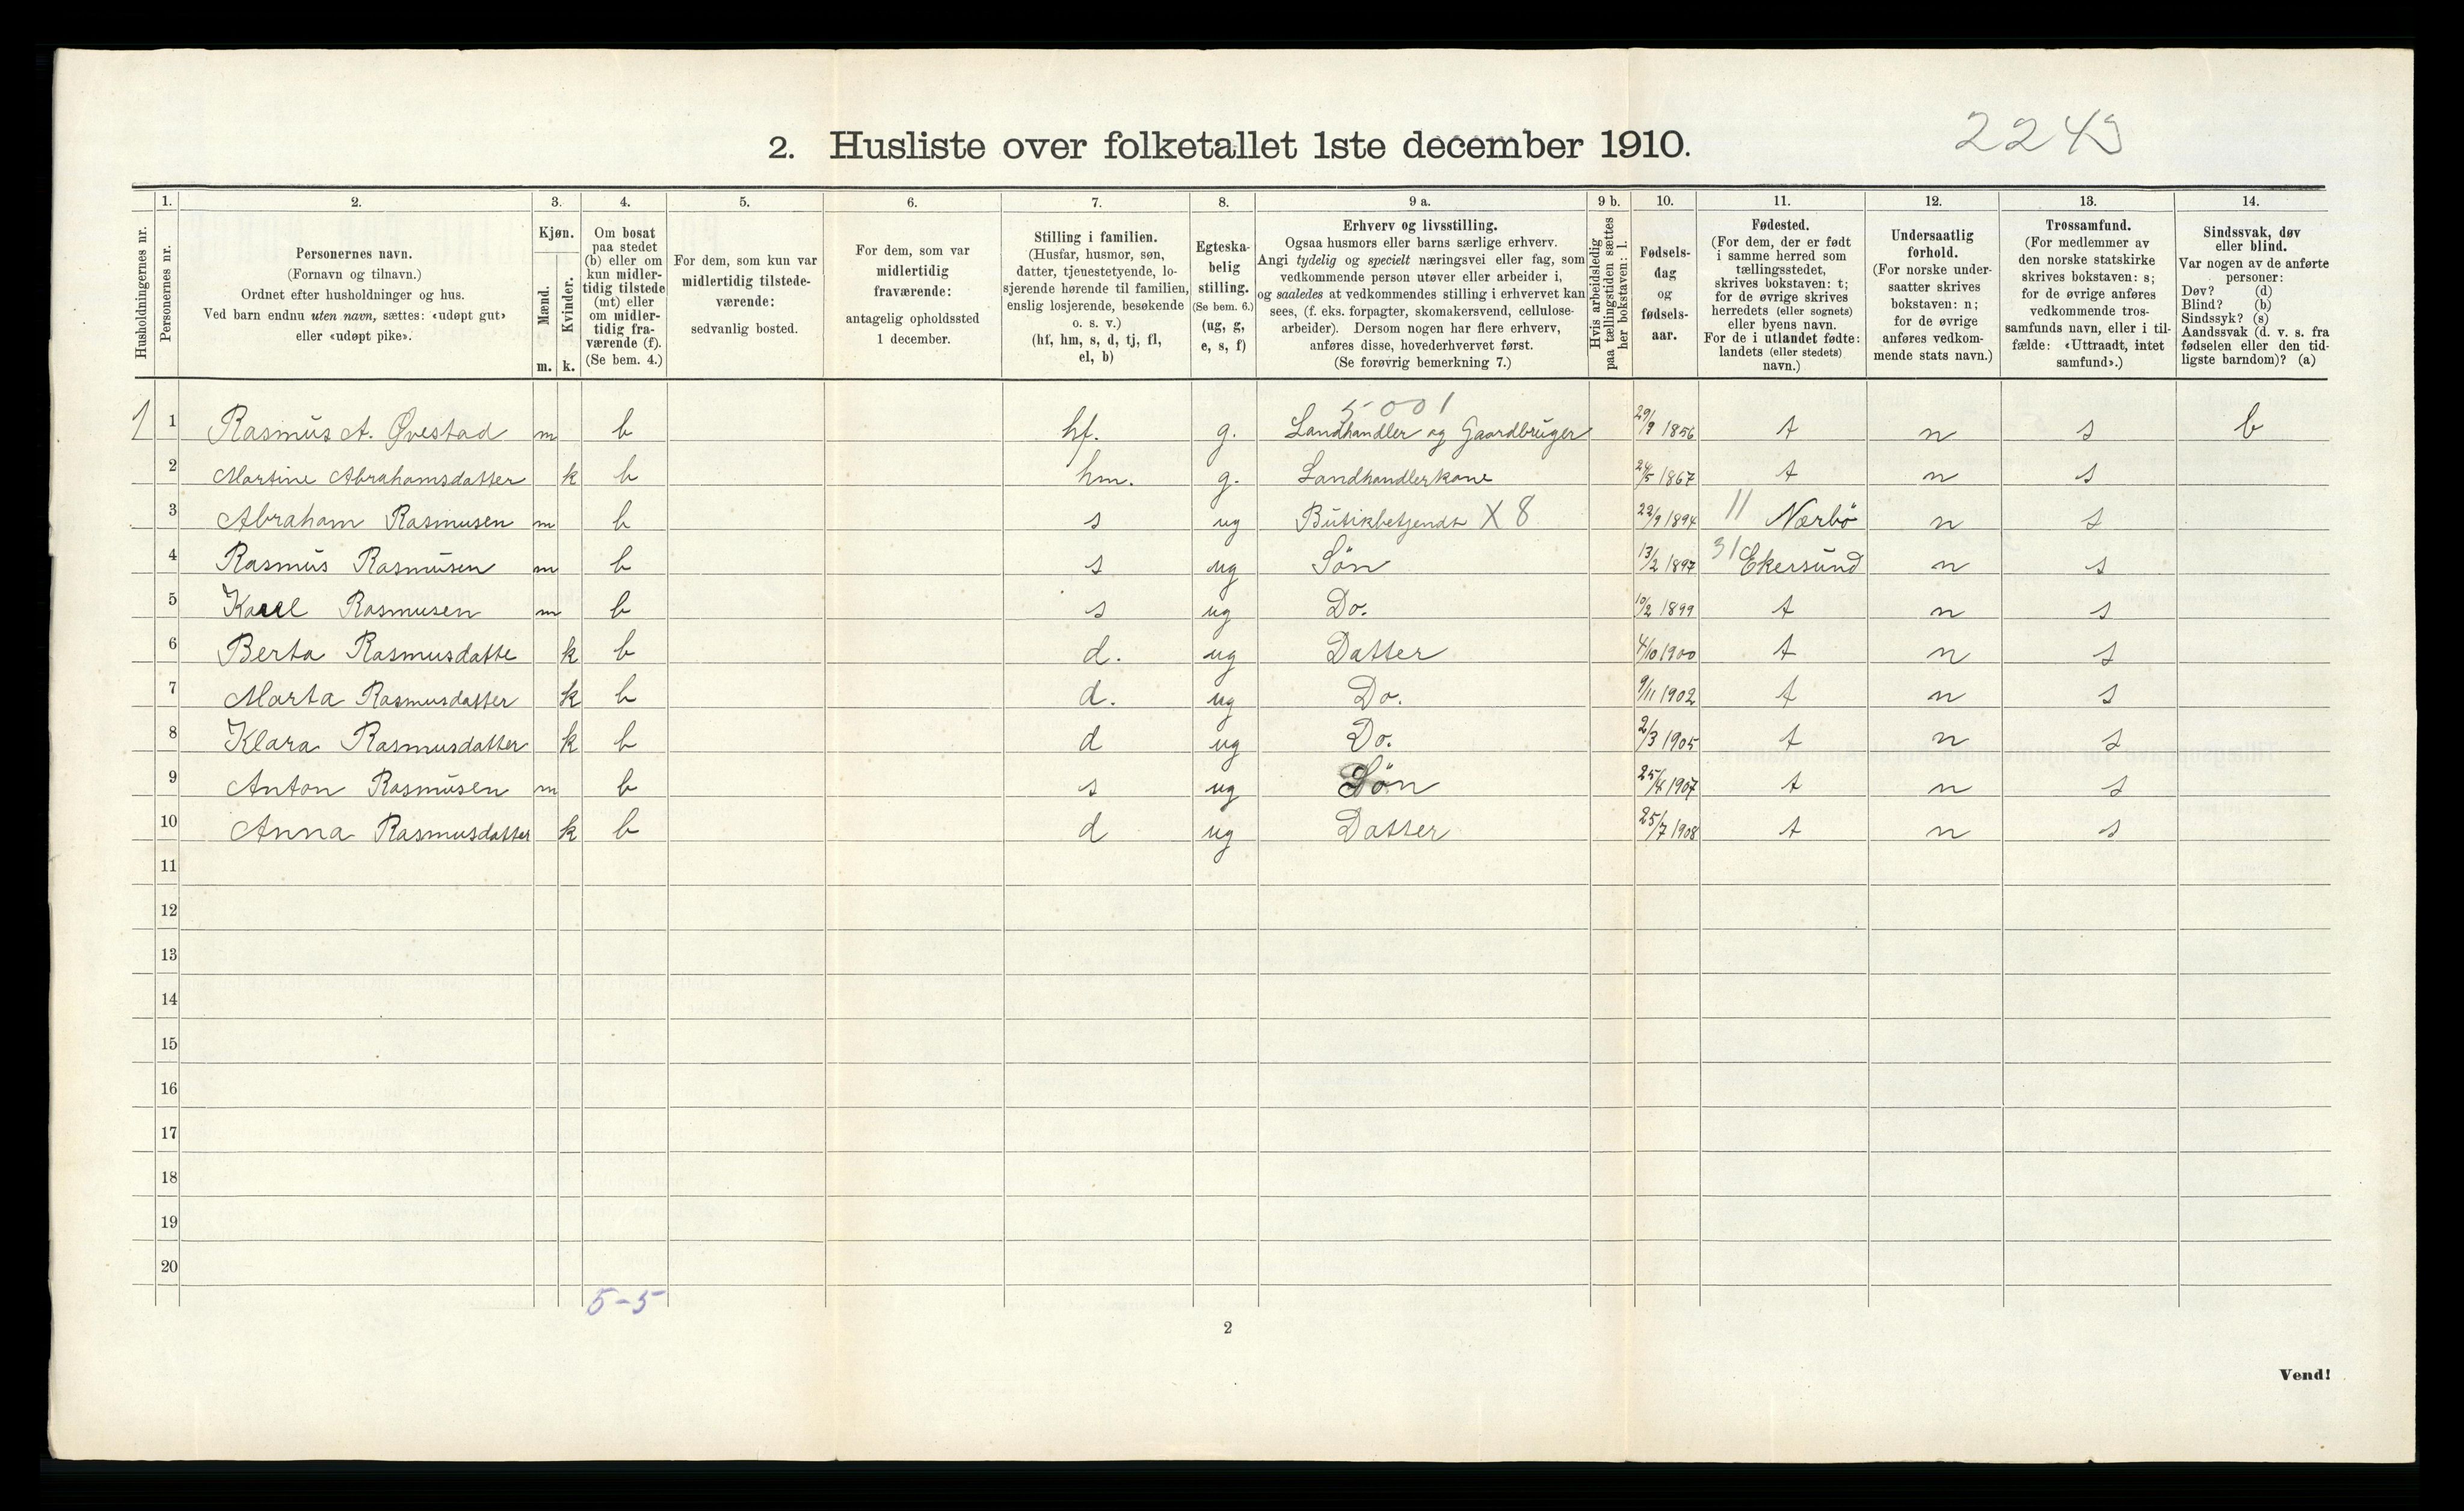 2. Husliste over folketallet 1ste december 1910.
2243
1. 2. 3. 4. 5. 6. 7. 8. 9 a. 9 b. 10. 11. 12. 13. 14.
Husholdningernes nr.
Personernes nr.
Personernes navn.
(Fornavn og tilnavn.)
Ordnet efter husholdninger og hus.
Ved barn endnu uten navn, sættes: «udøpt gut»
eller «udøpt pike».
Kjøn.
Mænd.
Kvinder.
m. k.
Om bosat
paa stedet
(b) eller om
kun midler-
tidig tilstede
(mt) eller
om midler-
tidig fra-
værende (f).
(Se bem. 4.)
For dem, som kun var
midlertidig tilstede-
værende:
sedvanlig bosted.
For dem, som var
midlertidig
fraværende:
antagelig opholdssted
1 december.
Stilling i familien.
(Husfar, husmor, søn,
datter, tjenestetyende, lo-
sjerende hørende til familien,
enslig losjerende, besøkende
o. s. v.)
(hf, hm, s, d, tj, fl,
el, b)
Egteska-
belig
stilling.
(Se bem. 6.)
(ug, g,
e, s, f)
Erhverv og livsstilling.
Ogsaa husmors eller barns særlige erhverv.
Angi tydelig og specielt næringsvei eller fag, som
vedkommende person utøver eller arbeider i,
og saaledes at vedkommendes stilling i erhvervet kan
sees, (f. eks. forpagter, skomakersvend, cellulose-
arbeider). Dersom nogen har flere erhverv,
anføres disse, hovederhvervet først.
(Se forøvrig bemerkning 7.)
Hvis arbeidsledig
paa tællingstiden sættes
her bokstaven: l.
Fødsels-
dag
og
fødsels-
aar.
Fødested.
(For dem, der er født
i samme herred som
tællingsstedet,
skrives bokstaven: t;
for de øvrige skrives
herredets (eller sognets)
eller byens navn.
For de i utlandet fødte:
landets (eller stedets)
navn.)
Undersaatlig
forhold.
(For norske under-
saatter skrives
bokstaven: n;
for de øvrige
anføres vedkom-
mende stats navn.)
Trossamfund.
(For medlemmer av
den norske statskirke
skrives bokstaven: s;
for de øvrige anføres
vedkommende tros-
samfunds navn, eller i til-
fælde: «Uttraadt, intet
samfund».)
Sindssvak, døv
eller blind.
Var nogen av de anførte
personer:
Døv? (d)
Blind? (b)
Sindssyk? (s)
Aandssvak (d. v. s. fra
fødselen eller den tid-
ligste barndom)? (a)
5-001
1 1 Rasmus A. Øvestad m b hf. g. Landhandler og Gaardbruger 29/9 1856 t n s b
2 Martine Abrahamsdatter k b hm. g. Landhandlerkone 24/5 1867 t n s
3 Abraham Rasmusen m b s ug Butikbetjendt X 8 22/9 1894 11 Nærbö n s
4 Rasmus Rasmusen m b s ug Sön 13/2 1897 31 Ekersund n s
5 Karl Rasmusen m b s ug Do. 10/2 1899 t n s
6 Berta Rasmusdatte k b d. ug Datter 4/10 1900 t n s
7 Marta Rasmusdatter k b d. ug Do. 9/11 1902 t n s
8 Klara Rasmusdatter k b d ug Do. 2/3 1905 t n s
9 Anton Rasmusen m b s ug Sön 25/4 1907 t n s
10 Anna Rasmusdatter k b d ug Datter 25/7 1908 t n s
11
12
13
14
15
16
17
18
19
20
5-5
2
Vend!